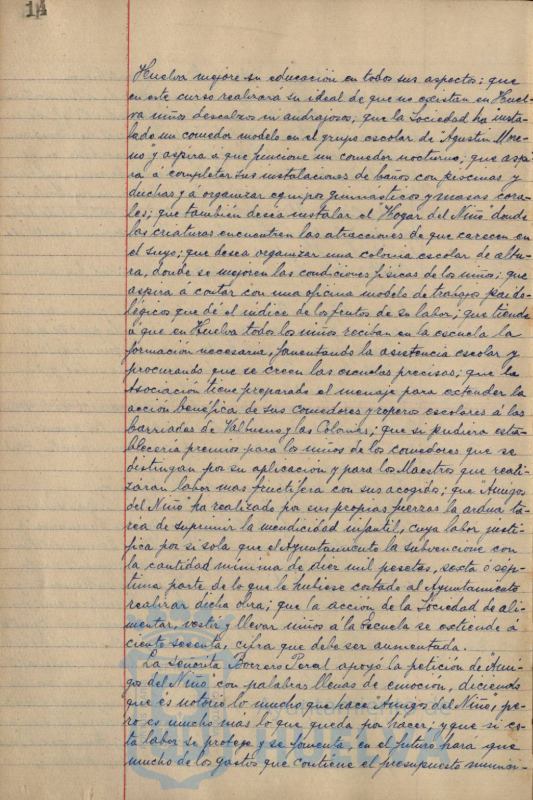 14
Huelva mejore su educación en todos sus aspectos; que
en este curso realizará su ideal de que no existan en Huel-
va niños descalzos ni andrajosos; que la Sociedad ha insta-
lado un comedor modelo en el grupo escolar de "Agustín More-
no" y aspira a que funcione un comedor nocturno; que aspi-
ra á completar sus instalaciones de baños con piscinas y
duchas y á organizar equipos gimnásticos y masas cora-
les; que también desea instalar el "Hogar del Niño" donde
las criaturas encuentren las atracciones de que carecen en
el suyo; que desea organizar una colonia escolar de altu-
ra, donde se mejoren las condiciones físicas de los niños; que
aspira á contar con una oficina modelo de trabajos paido-
lógicos que dé el índice de los frutos de su labor; que tiende
á que en Huelva todos los niños reciban en la escuela la
formación necesaria, fomentando la asistencia escolar y
procurando que se creen las escuelas precisas; que la
Asociación tiene preparado el menaje para extender la
acción benéfica de sus comedores y roperos escolares á las
barriadas de Valbueno y las Colonias; que si pudiera esta-
blecería premios para los niños de los comedores que se
distingan por su aplicación y para los Maestros que reali-
zaran labor mas fructífera con sus acogidos; que "Amigos
del Niño" ha realizado por sus propias fuerzas la ardua ta-
rea de suprimir la mendicidad infantil, cuya labor justi-
fica por si sola que el Ayuntamiento la subvencione con
la cantidad mínima de diez mil pesetas, sexta ó sép-
tima parte de lo que le hubiese costado al Ayuntamiento
realizar dicha obra; que la acción de la Sociedad de ali-
mentar, vestir y llevar niños á la Escuela se extiende á
ciento sesenta, cifra que debe ser aumentada.
La Señorita Borrero Peral apoyó la petición de "Ami-
gos del Niño" con palabras llenas de emoción, diciendo
que es notorio lo mucho que hace "Amigos del Niño", pe-
ro es mucho mas lo que queda por hacer; y que si es-
ta labor se protege y se fomenta, en el futuro hará que
mucho de los gastos que contiene el presupuesto munici-